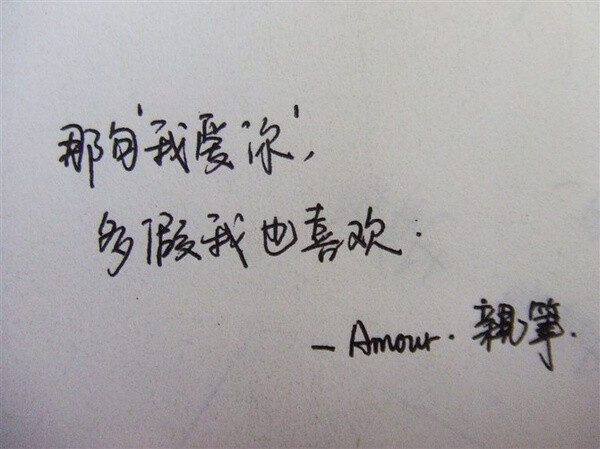 那句'我爱你',
多假我也喜欢.
— Amour. 親筆.